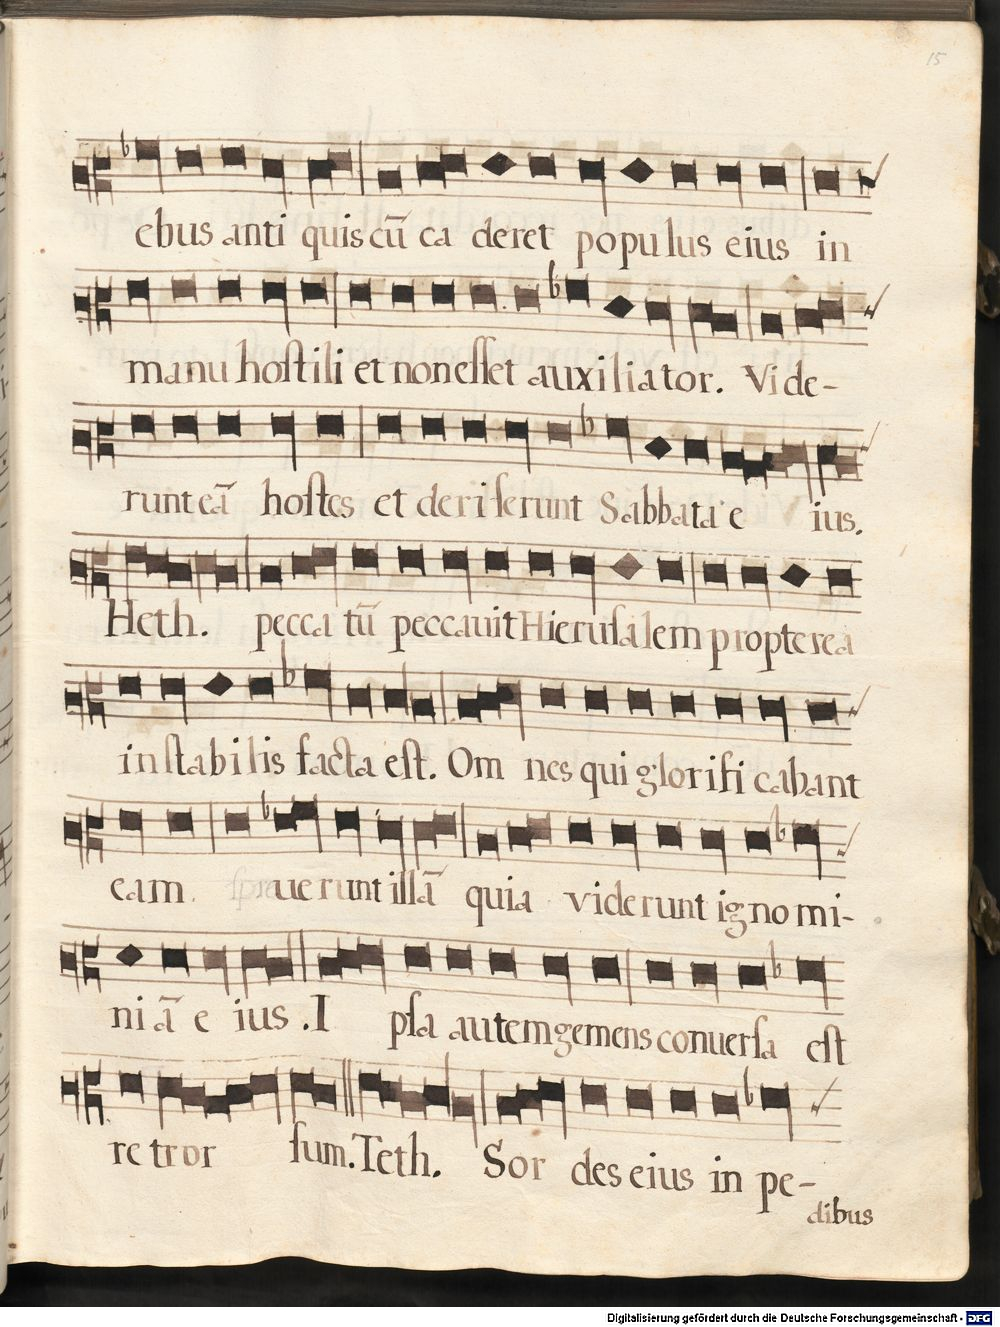 15
ebus anti quis cū ca deret popu lus eius in
manu hoſtili et non eſſet auxiliator. Vide-
runt eā hoſtes et deriſerunt Sabbata e ius.
Heth. pecca tū peccauit Hieruſalem propterea
inſtabilis facta eſt. Om nes qui glorifi cabant
eam spre ue runt illā quia viderunt igno mi-
ni ā e ius . I pſa autem gemens conuerſa eſt
re tror ſum. Teth. Sor des eius in pe-
dibus
Digitalisierung gefördert durch die Deutsche Forschungsgemeinschaft - DFG